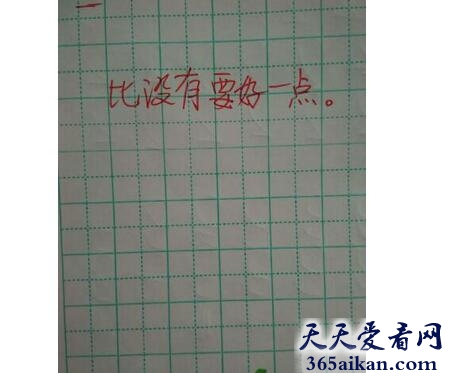 比没有要好一点。
天天爱看网
365aikan.com